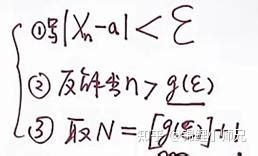 ①写|Xn-a|<ε
②反解出n>g(ε)
③取N=[g(ε)]+1
知乎 @